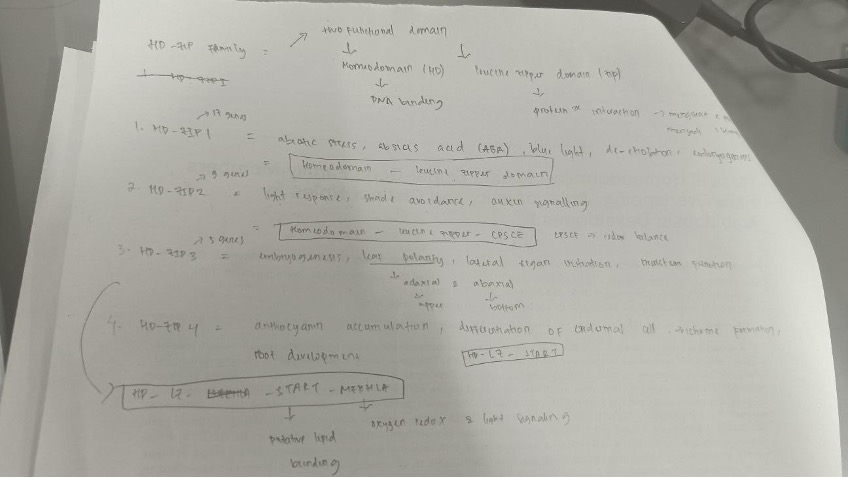 two functional domain
HD-ZIP Family =
Homeodomain (HD) leucine zipper domain (zip)
1. HD-ZIP I
DNA binding
protein interaction →
→ 17 genes
1. HD-ZIP 1 = abiotic stress, absicis acid (ABA), blue light, de-etiolation, embryogenesis
= Homeodomain - leucine zipper domain
→ 9 genes
2. HD-ZIP2 = light response, shade avoidance, auxin signalling
= Homeodomain - leucine zipper - CPSCE CPSCE → redox balance
→ 5 genes
3. HD-ZIP 3 = embryogenesis, leaf polarity, lateral organ initiation, meristem function
adaxial & abaxial
upper bottom
4. HD-ZIP 4 = anthocyanin accumulation, differentiation of epidermal cell, trichome formation,
root development
HD-LZ-START
HD- LZ- MEKHLA -START-MEKHLA
oxygen redox & light signaling
putative lipid
binding